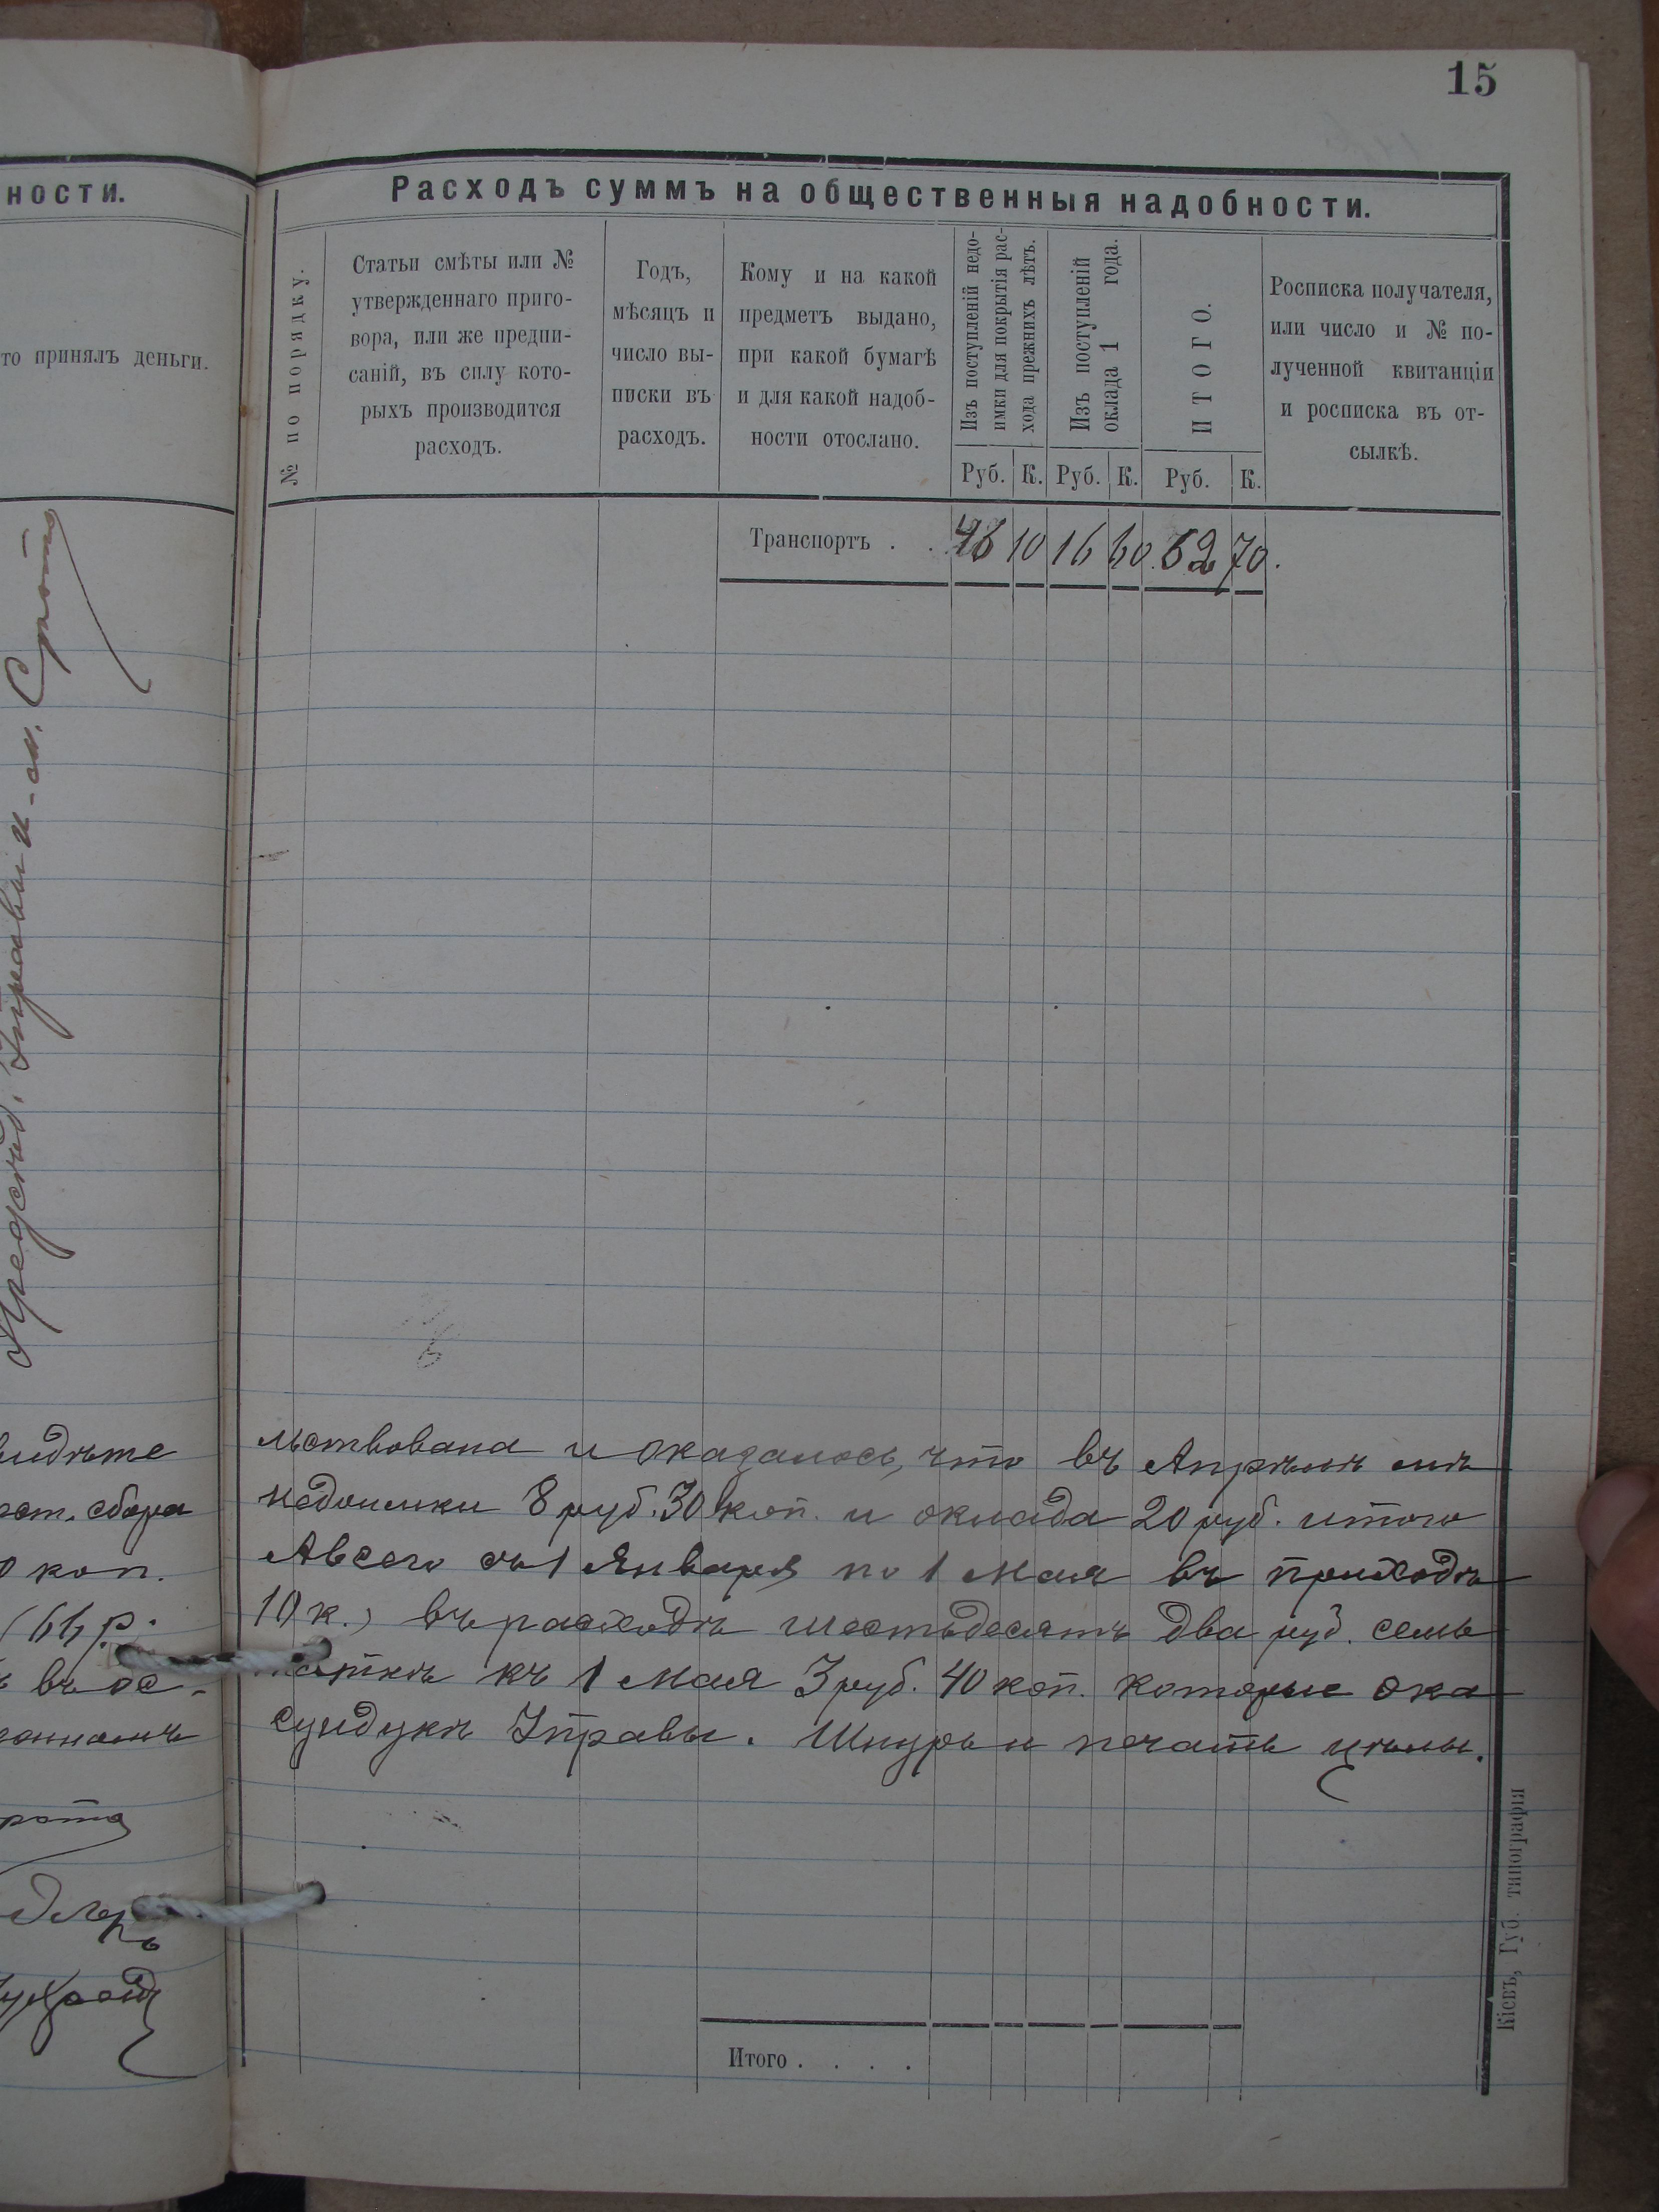 15
ности.
то принялъ деньги.
Расходъ суммъ на общественныя надобности.
№ по порядку.
Статьи смѣты или №
утвержденнаго приго-
вора, или же предпи-
саній, въ силу кото-
рыхъ производится
расходъ.
Годъ,
мѣсяцъ и
число вы-
писки въ
расходъ.
Кому и на какой
предметъ выдано,
при какой бумагѣ
и для какой надоб-
ности отослано.
Изъ поступленій недо-
имки для покрытія рас-
хода прежнихъ лѣтъ.
Изъ поступленій
оклада 1 года.
ИТОГО.
Росписка получателя,
или число и № по-
лученной квитанціи
и росписка въ от-
сылкѣ.
Руб. К. Руб. К. Руб. К.
Транспортъ . . 46 10 16 60 62 70.
Сирота
видѣте
сбора
0 коп.
(66 р.
въ ос-
льствована и оказалось, что въ Апрѣлѣ мѣ
недоимки 8 руб. 30 коп. и оклада 20 руб. итого
Авсего съ 1 Января по 1 Мая въ приходѣ
10 к.) въ расходѣ шестьдесятъ два руб. семь
таткѣ къ 1 Мая 3 руб. 40 коп. которые ока
сундукѣ Управы. Шнуръ и печать цѣлы.
рота
Итого . . . .
Кіевъ, Губ. типографія